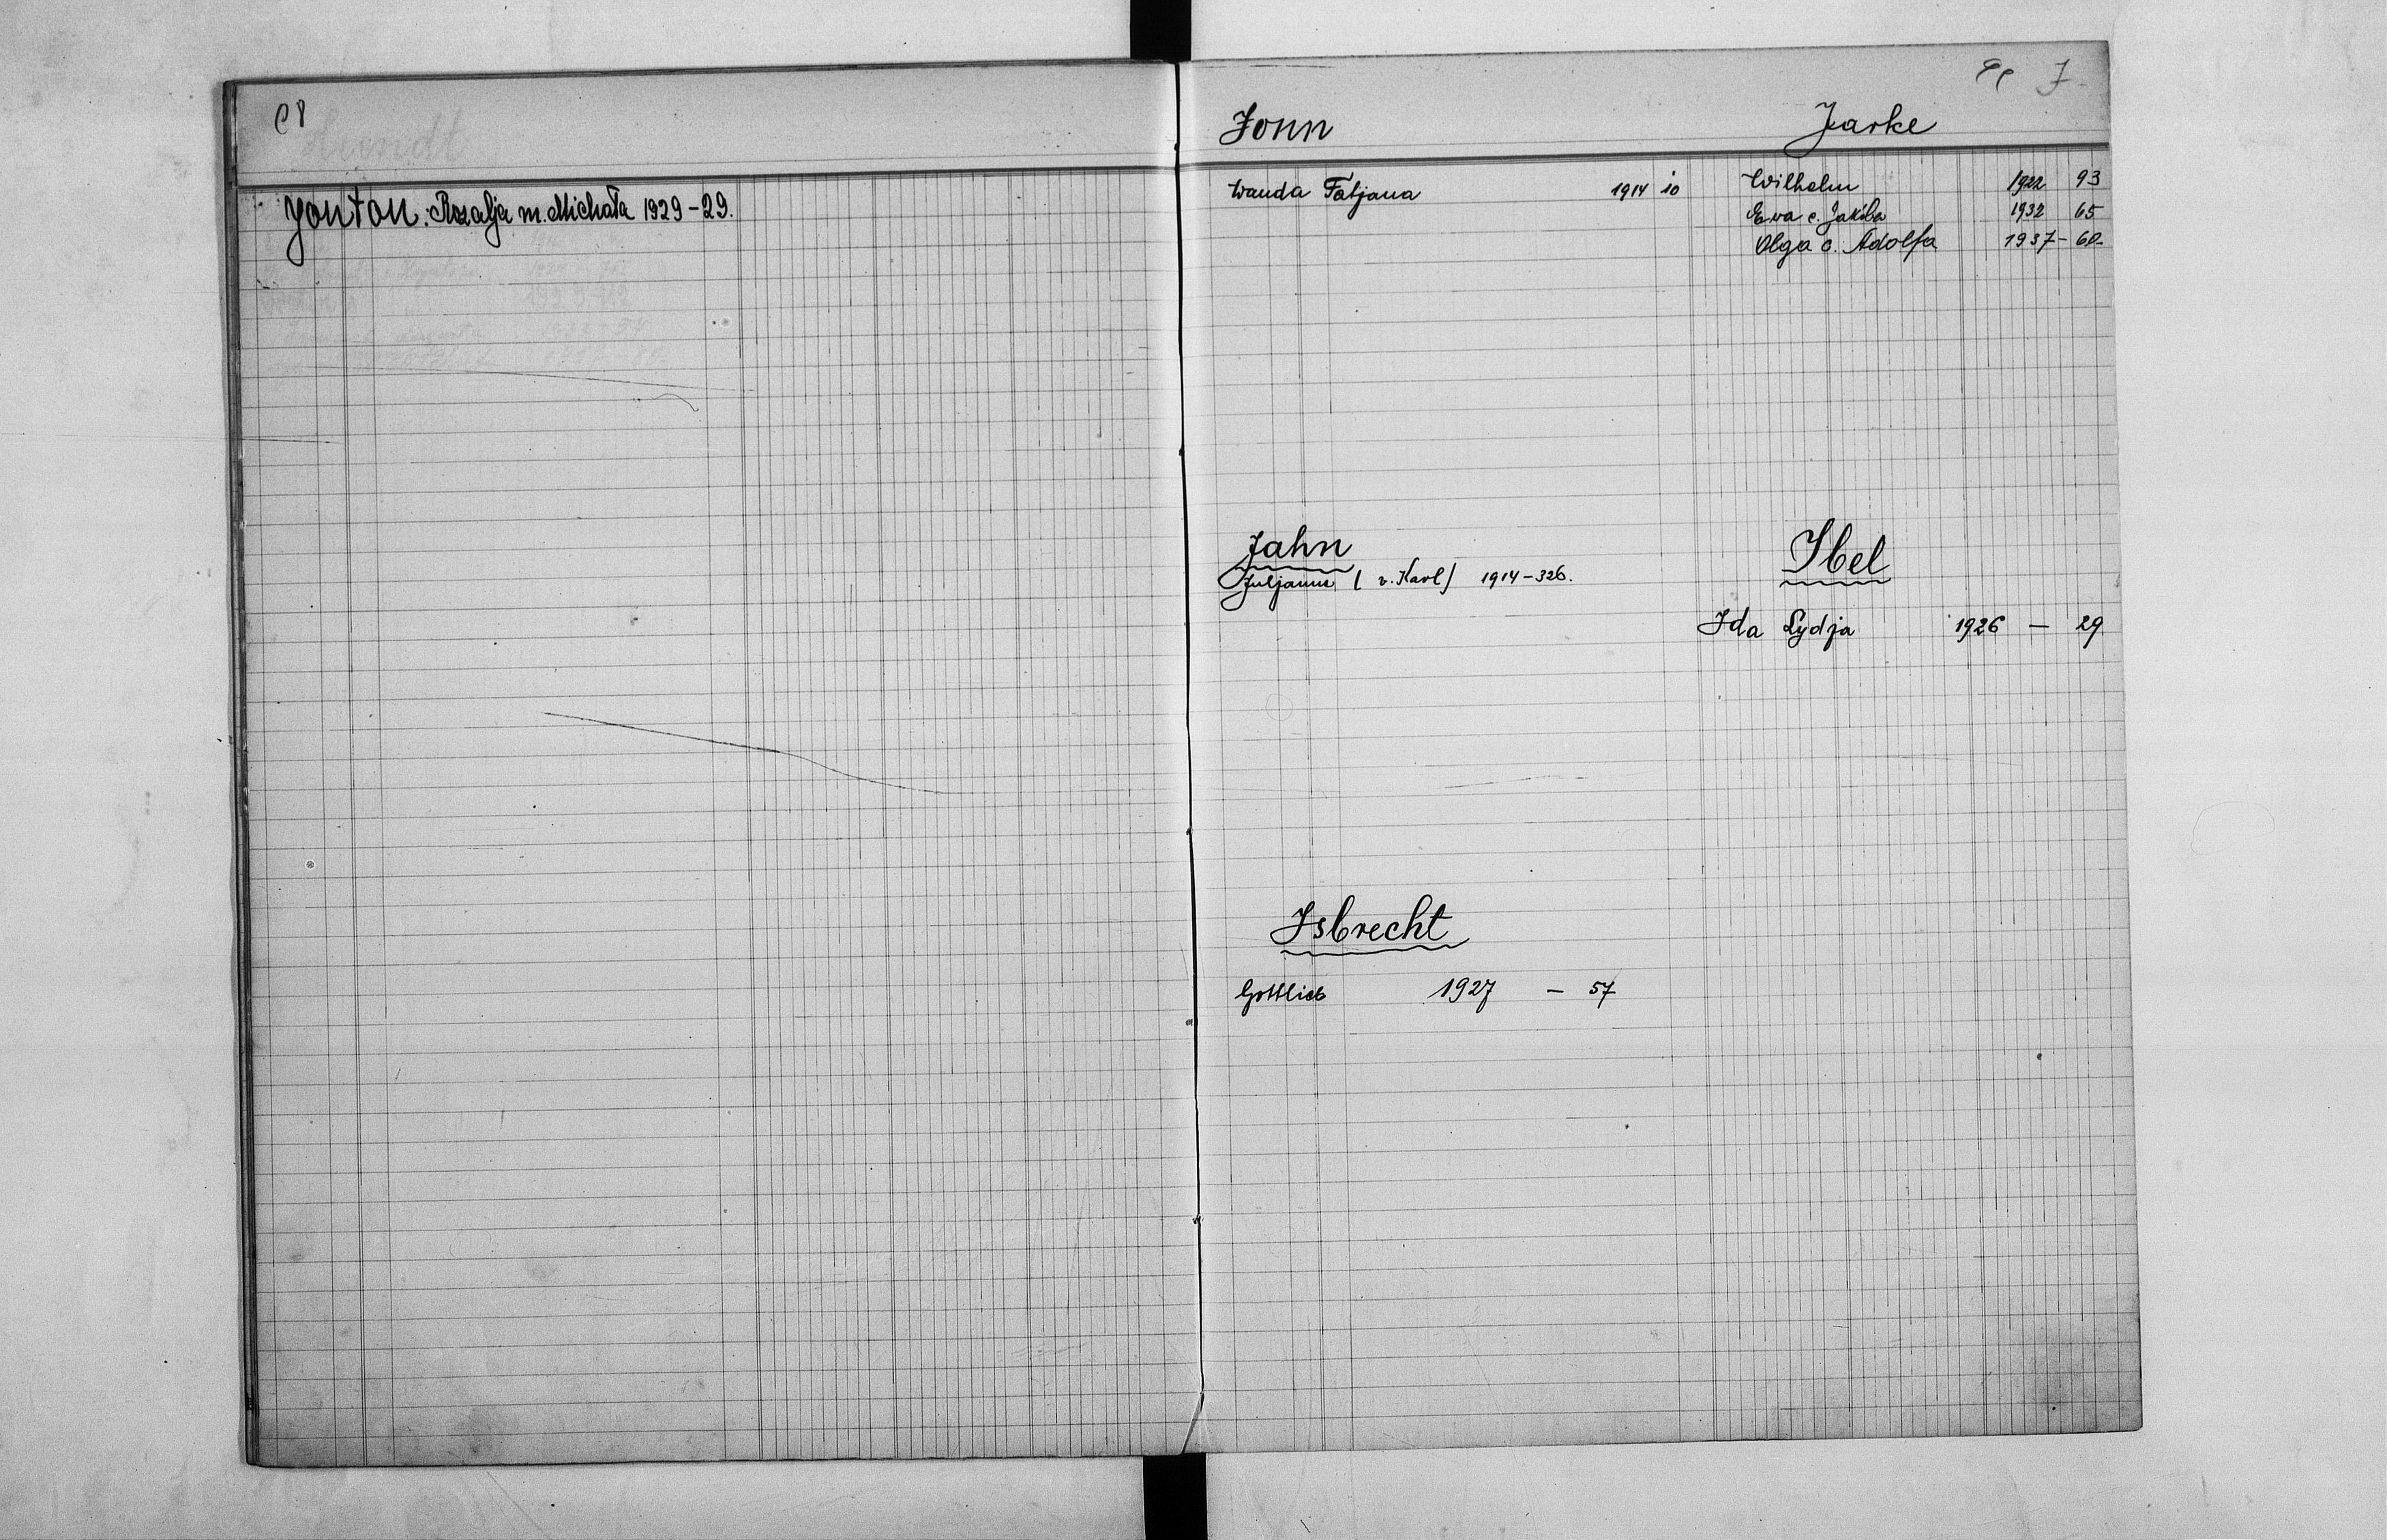 Jonton: Rozalja m. Michała 1929 - 29.
J
Jonn
Wanda Tatjana 1914 10
Jahn
Juljanna (v. Karl) 1914 - 326.
Isbrecht
Gottlieb 1927 - 57
Jarke
Wilhelm 1922 93
Ewa c. Jakóba 1932 65
Olga c. Adolfa 1937 - 60
Ibel
Ida Lydja 1926 - 29